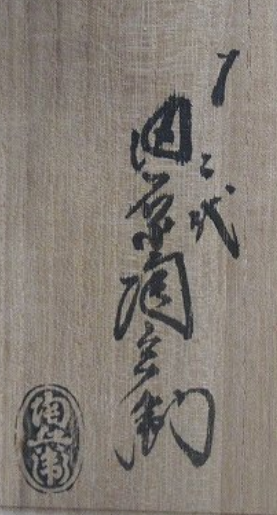 十二代
田原陶兵衛
陶兵衛